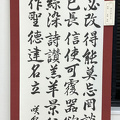 必改得能莫忘罔談
己長信使可覆器欲
絲染詩讚羔羊景行
作聖德建名立